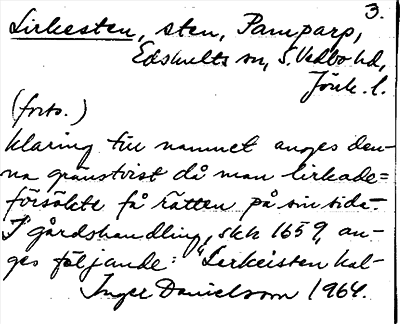 3.
Lirkesten, sten, Pamparp,
Edshults sn, S. Vedbo hd,
Jönk. l.
(forts.)
klaring till namnet anges den-
na gränstvist då man lirkade =
försökte få rätten på sin sida. -
I gårdshandling, skh 1659, an-
ges följande: "Lerkeisten kal-
Inger Danielsson 1964.